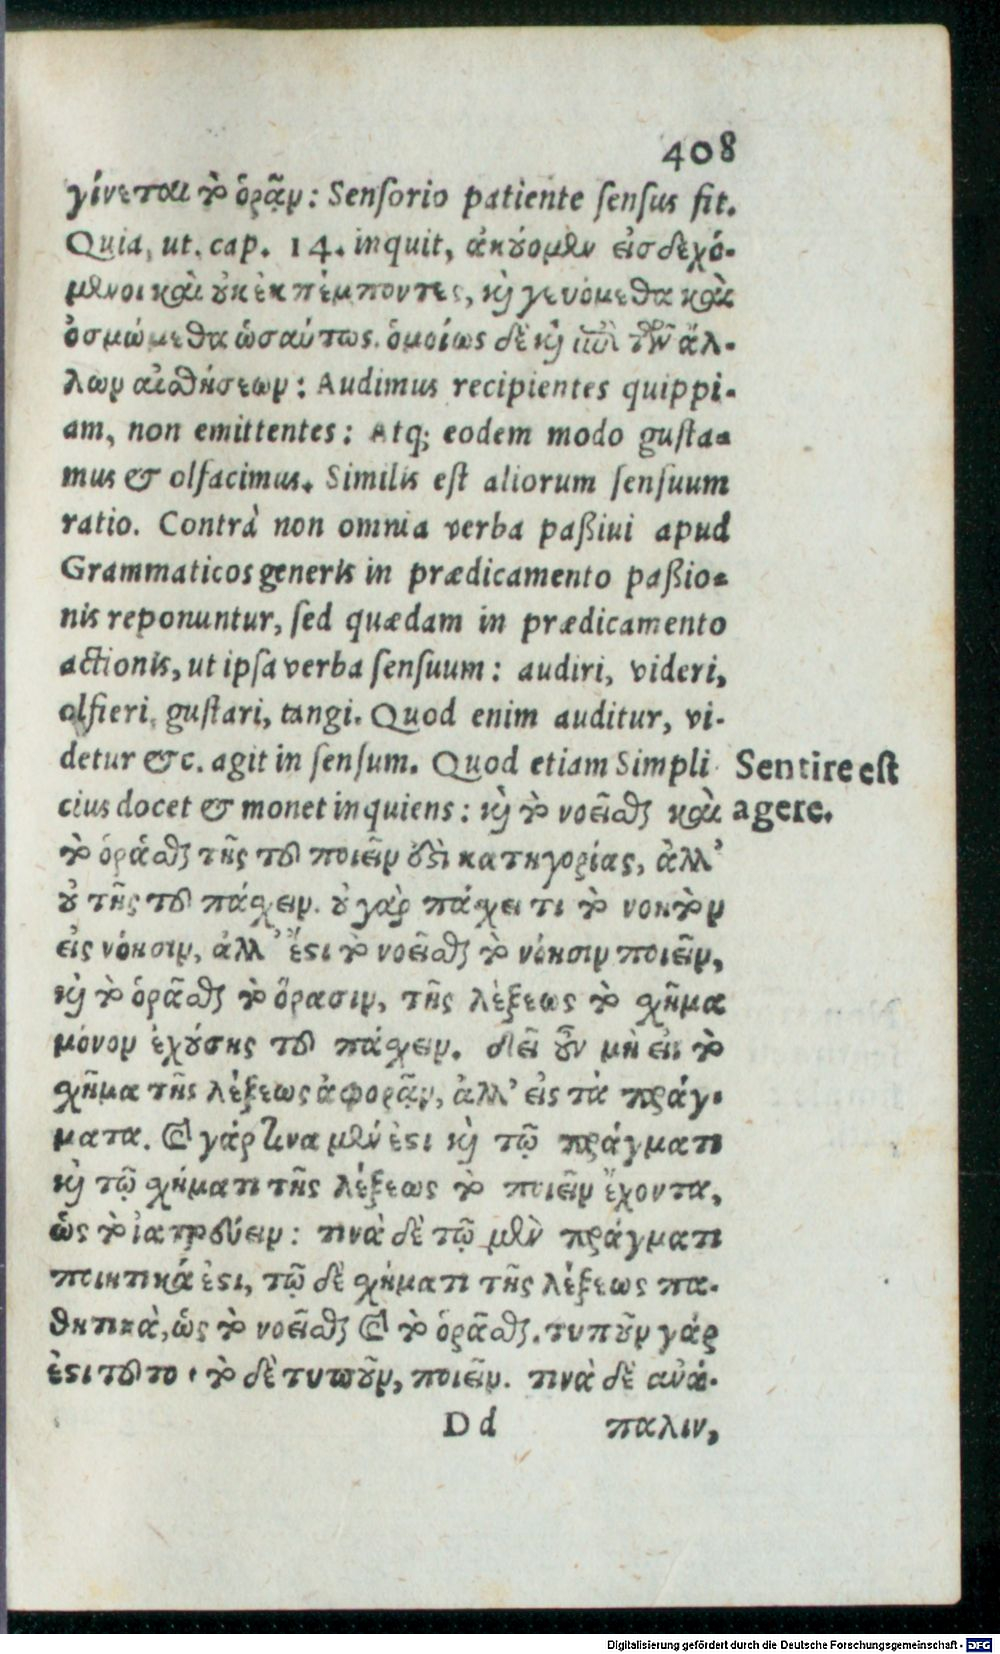 408
γίνεται τὸ ὁρᾷν: Senſorio patiente ſenſus fit.
Quia, ut. cap. 14. inquit, ἀκούομεν εἰσδεχό-
μενοι καὶ οὐκ ἐκπέμποντες, καὶ γευόμεθα καὶ
ὀσμώμεθα ὡσαύτως. ὁμοίως δὲ καὶ ἐπὶ τῶν ἄλ-
λων αἰσθήσεων: Audimus recipientes quippi-
am, non emittentes: Atq; eodem modo guſta-
mus & olfacimus. Similis eſt aliorum ſenſuum
ratio. Contrà non omnia verba paßiui apud
Grammaticos generis in prædicamento paßio-
nis reponuntur, ſed quædam in prædicamento
actionis, ut ipſa verba ſenſuum: audiri, videri,
olfieri, guſtari, tangi. Quod enim auditur, vi-
detur &c. agit in ſenſum. Quod etiam Simpli
Sentire eſt
cius docet & monet inquiens: καὶ τὸ νοεῖσθαι καὶ
agere.
τὸ ὁρᾶσθαι τῆς τοῦ ποιεῖν ἐστὶ κατηγορίας, ἀλλ’
οὐ τῆς τοῦ πάσχειν. οὐ γὰρ πάσχει τι τὸ νοητὸν
εἰς νόησιν, ἀλλ’ ἔστι τὸ νοεῖσθαι τὸ νόησιν ποιεῖν,
καὶ τὸ ὁρᾶσθαι τὸ ὅρασιν, τῆς λέξεως τὸ σχῆμα
μόνον ἐχούσης τοῦ πάσχειν. δεῖ οὖν μὴ εἰς τὸ
σχῆμα τῆς λέξεως ἀφορᾷν, ἀλλ’ εἰς τὰ πράγ-
ματα. καὶ γάρ τινα μέν ἐστι καὶ τῷ πράγματι
καὶ τῷ σχήματι τῆς λέξεως τὸ ποιεῖν ἔχοντα,
ὡς τὸ ἰατρεύειν: τινὰ δὲ τῷ μὲν πράγματι
ποιητικά ἐστι, τῷ δὲ σχήματι τῆς λέξεως πα-
θητικὰ, ὡς τὸ νοεῖσθαι καὶ τὸ ὁρᾶσθαι. τυποῦν γάρ
ἐστι τοῦτο· τὸ δὲ τυποῦν, ποιεῖν. τινὰ δὲ ἀνά-
Dd παλιν,
Digitalisierung gefördert durch die Deutsche Forschungsgemeinschaft - DFG